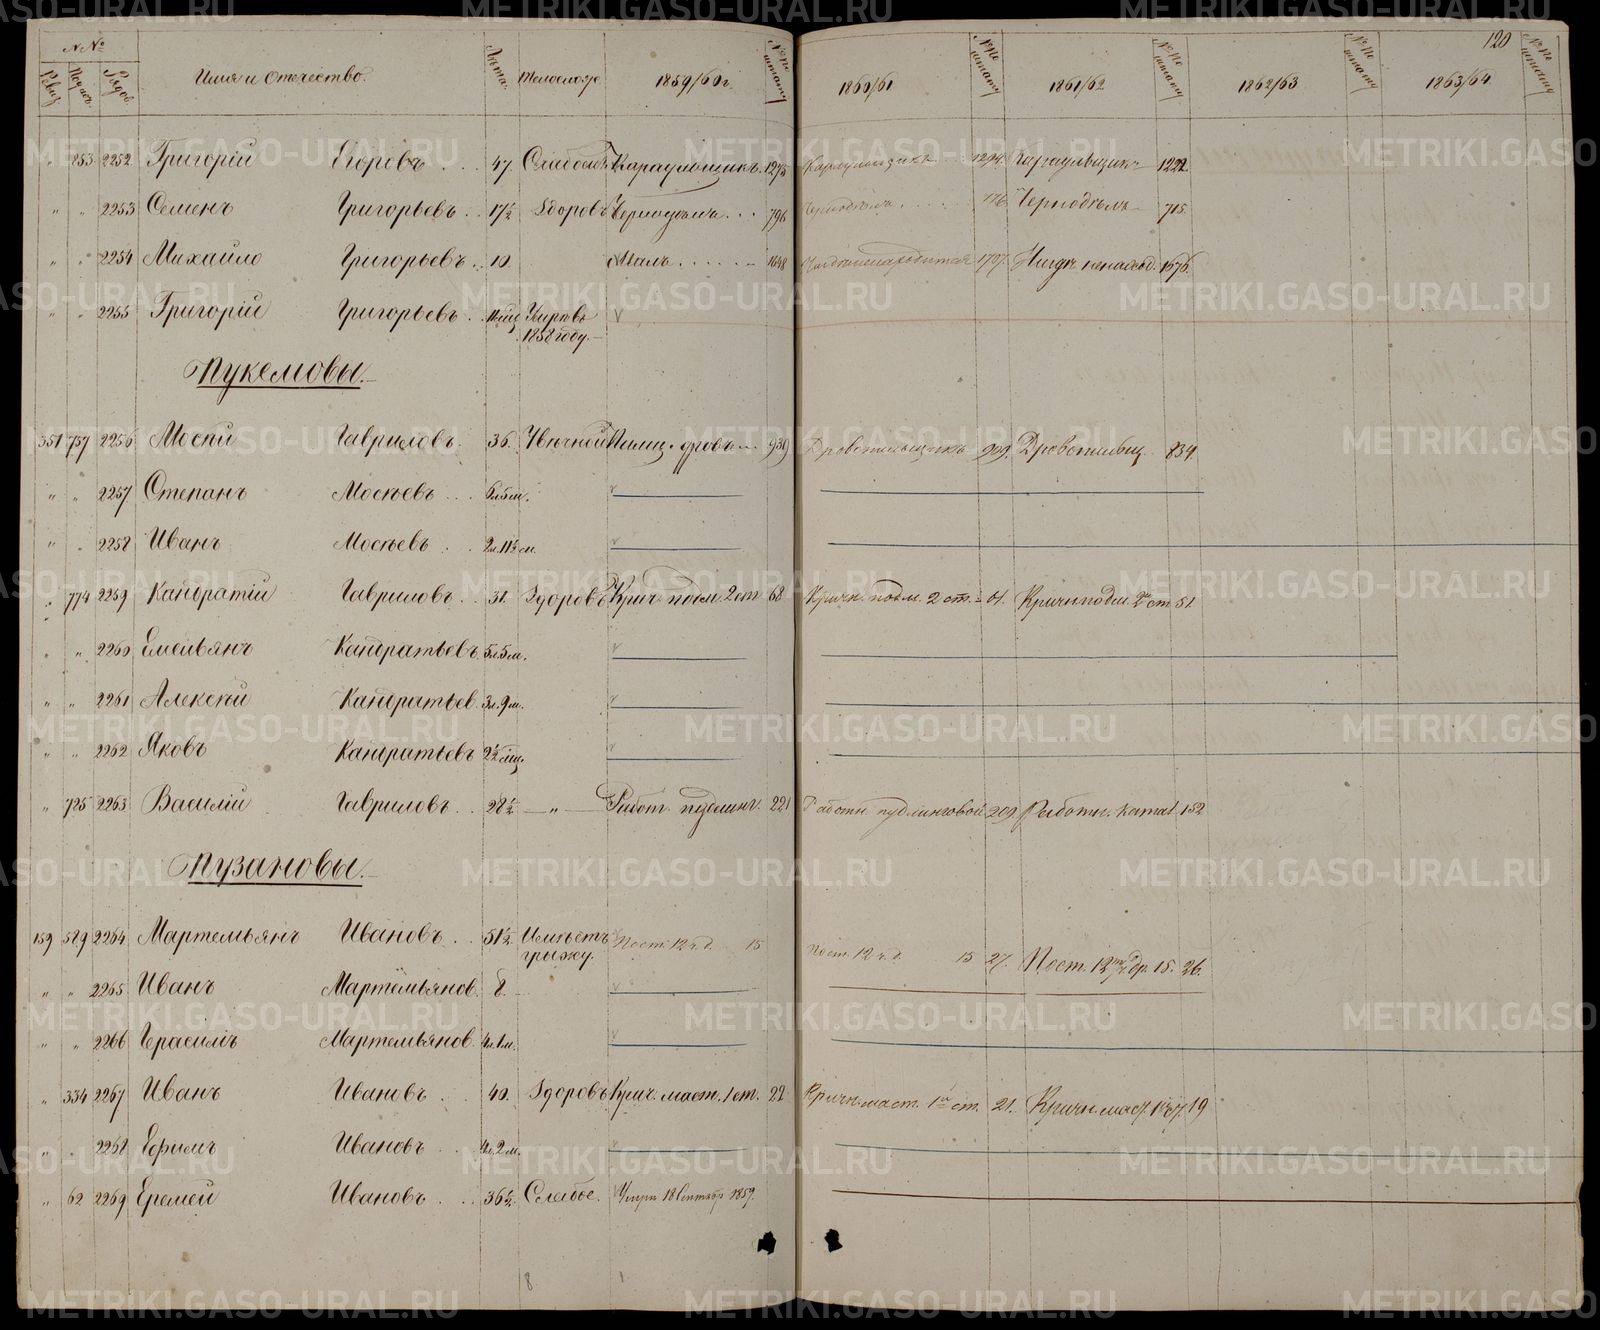 120
№№ Имя и Отчество. Лета. Телосложе 1859/60 г. №№ по штату 1860/61 №№ по штату 1861/62 №№ по штату 1862/63 №№ по штату 1863/64 №№ по штату
Ревиз Рядов.
" 253 2252 Григорій Егоровъ 47. Караульщикъ. 1275 Караульщикъ 1294. Караульщикъ 1222.
" " 2253 Семенъ Григорьевъ 17½ Здоровъ Чернодѣль 796 Чернодѣль 776 Чернодѣль 715.
" " 2254 Михайло Григорьевъ 10. Малъ 1648 1707. Нигдѣ ненаход. 1676.
" " 2255 Григорій Григорьевъ Умеръ въ 1858 году.
Пукемовы.
351 757 2256 Мосѣй Гавриловъ. 36. Увѣчной Пилищ. дровъ 939 Дровопильщикъ 909. Дровопильщ. 834.
" " 2257 Степанъ Мосѣевъ 6 л. 5 м.
" " 2258 Иванъ Мосѣевъ 2 л. 11½ м.
" 774 2259 Кандратій Гавриловъ 31. Здоровъ Крич. подм. 2 ст. 68 Кричн. подм. 2 ст. 61. Кричн подм. 2й ст. 51.
" " 2260 Емельянъ Кандратьевъ 5 л. 5 м.
" " 2261 Алексѣй Кандратьев. 3 л. 9 м.
" " 2262 Яковъ Кандратьевъ 2½ мѣц.
" 725 2263 Василій Гавриловъ 28½ —"— Работ. пудлинг. 221 Работн. пудлинговой 209 Работн. катал 152
Пузановы.
159 589 2264 Мартемьянъ Ивановъ 51½ Имѣетъ грыжу. Пост. 12 ч. д. 15 Пост. 12 ч. д. 15 27. Пост. 12 ч. др. 15. 26.
" " 2265 Иванъ Мартемьянов. 8.
" " 2266 Герасимъ Мартемьянов. 4 л. 1 м.
" 334 2267 Иванъ Ивановъ 40. Здоровъ Крич. маст. 1 ст. 22 Кричн. маст. 1й ст. 21. Кричн. маст. 1й ст. 19
" " 2268 Ефимъ Ивановъ 4 л. 2 м.
" 62 2269 Еремей Ивановъ 36½ Слабое. Умеръ 18 Сентябр 1859.
METRIKI.GASO-URAL.RU